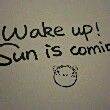 Wake up!
Sun is comin